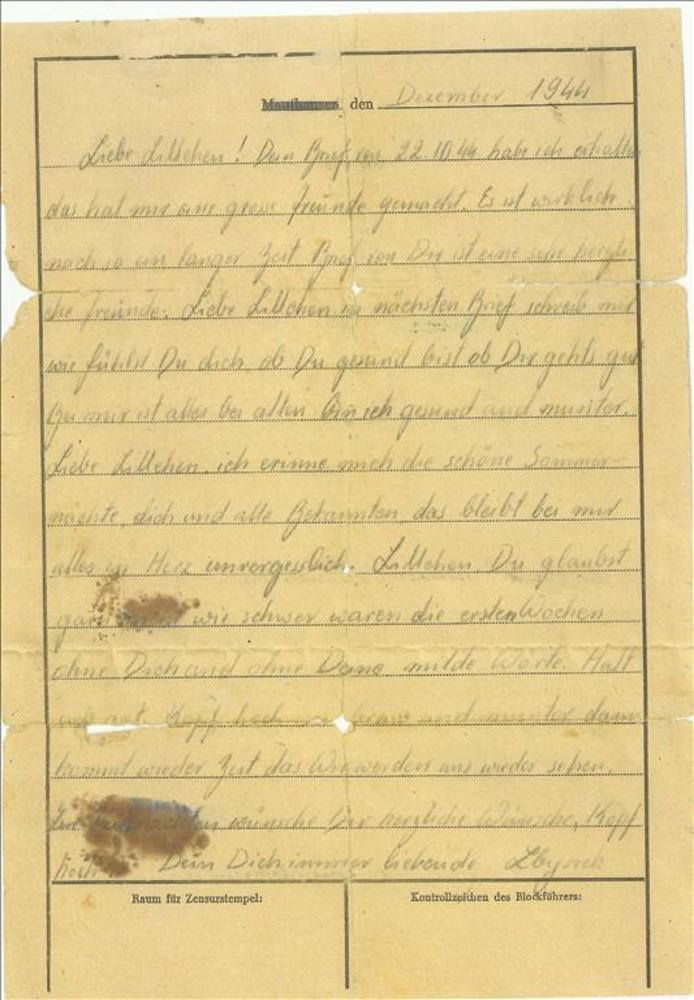 Mauthausen, den Dezember 1944
Liebe Lillchen! Dein Brief von 22.10.44 habe ich erhalten
das hat mir eine grosse freunde gemacht. Es ist wirklich
nach so ein langer Zeit Brief von Dir ist eine sehr herzli-
che freunde. Liebe Lillchen in nächsten Brief schreib mir
wie fühlst Du dich, ob Du gesund bist ob Dir gehts gut
Bei mir ist alles bei alten bin ich gesund und munter.
Liebe Lillchen ich erinne mich die schöne Sommer-
nächte, dich und alle Bekannten, das bleibt bei mir
alles in Herz unvergesslich. Lillchen Du glaubst
wie schwer waren die ersten Wochen
ohne Dich und ohne Deine milde Worte. Halt
gut. Kopf hoch brav und munter dann
kommt wieder Zeit das Wir werden uns wieder sehen.
wünsche Dir herzliche Wünsche, Kopf
hoch Dein Dich immer liebende
Raum für Zensurstempel:
Kontrollzeichen des Blockführers: